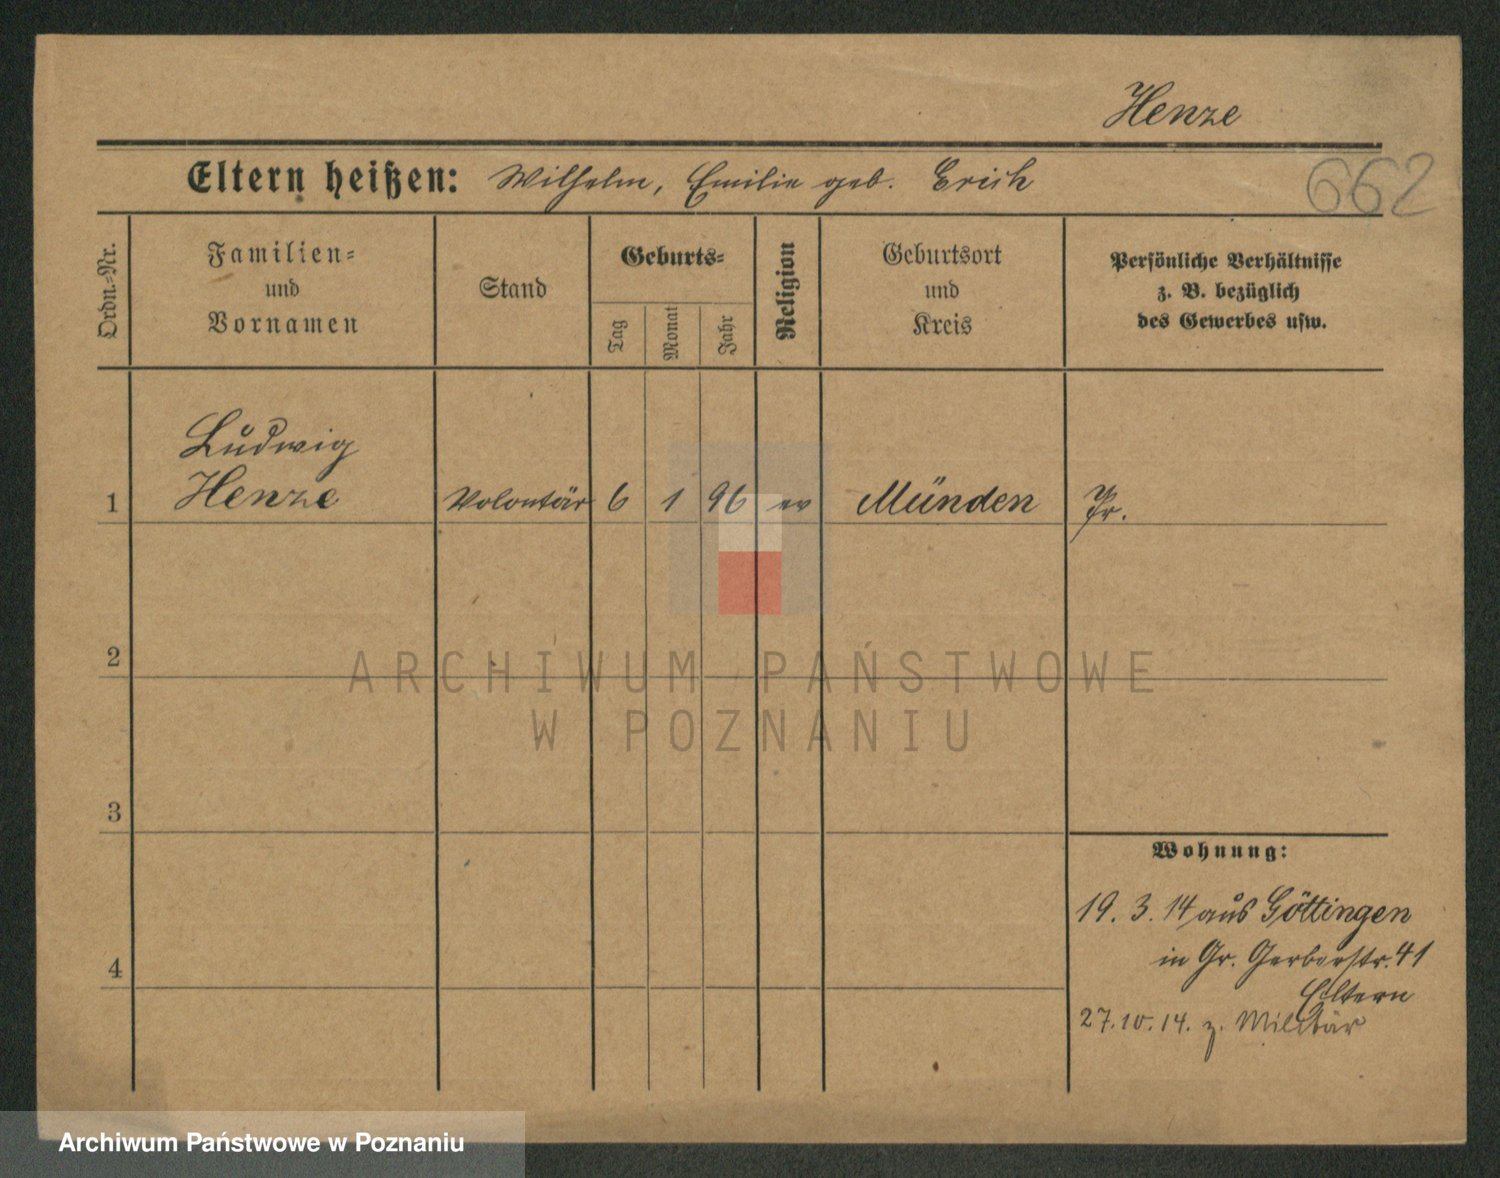 Henze
Eltern heißen: Wilhelm, Emilie geb. Erich
662
Ordn.-Nr.
Familien-
und
Vornamen
Stand
Geburts-
Tag
Monat
Jahr
Religion
Geburtsort
und
Kreis
Persönliche Verhältnisse
z. B. bezüglich
des Gewerbes usw.
Ludwig
1 Henze Volontär 6 1 96 ev Münden Pr.
2
ARCHIWUM PAŃSTWOWE
W POZNANIU
3
Wohnung:
19. 3. 14 aus Göttingen
in Gr. Gerberstr. 41
4
Eltern
27.10.14. z. Militär
Archiwum Państwowe w Poznaniu